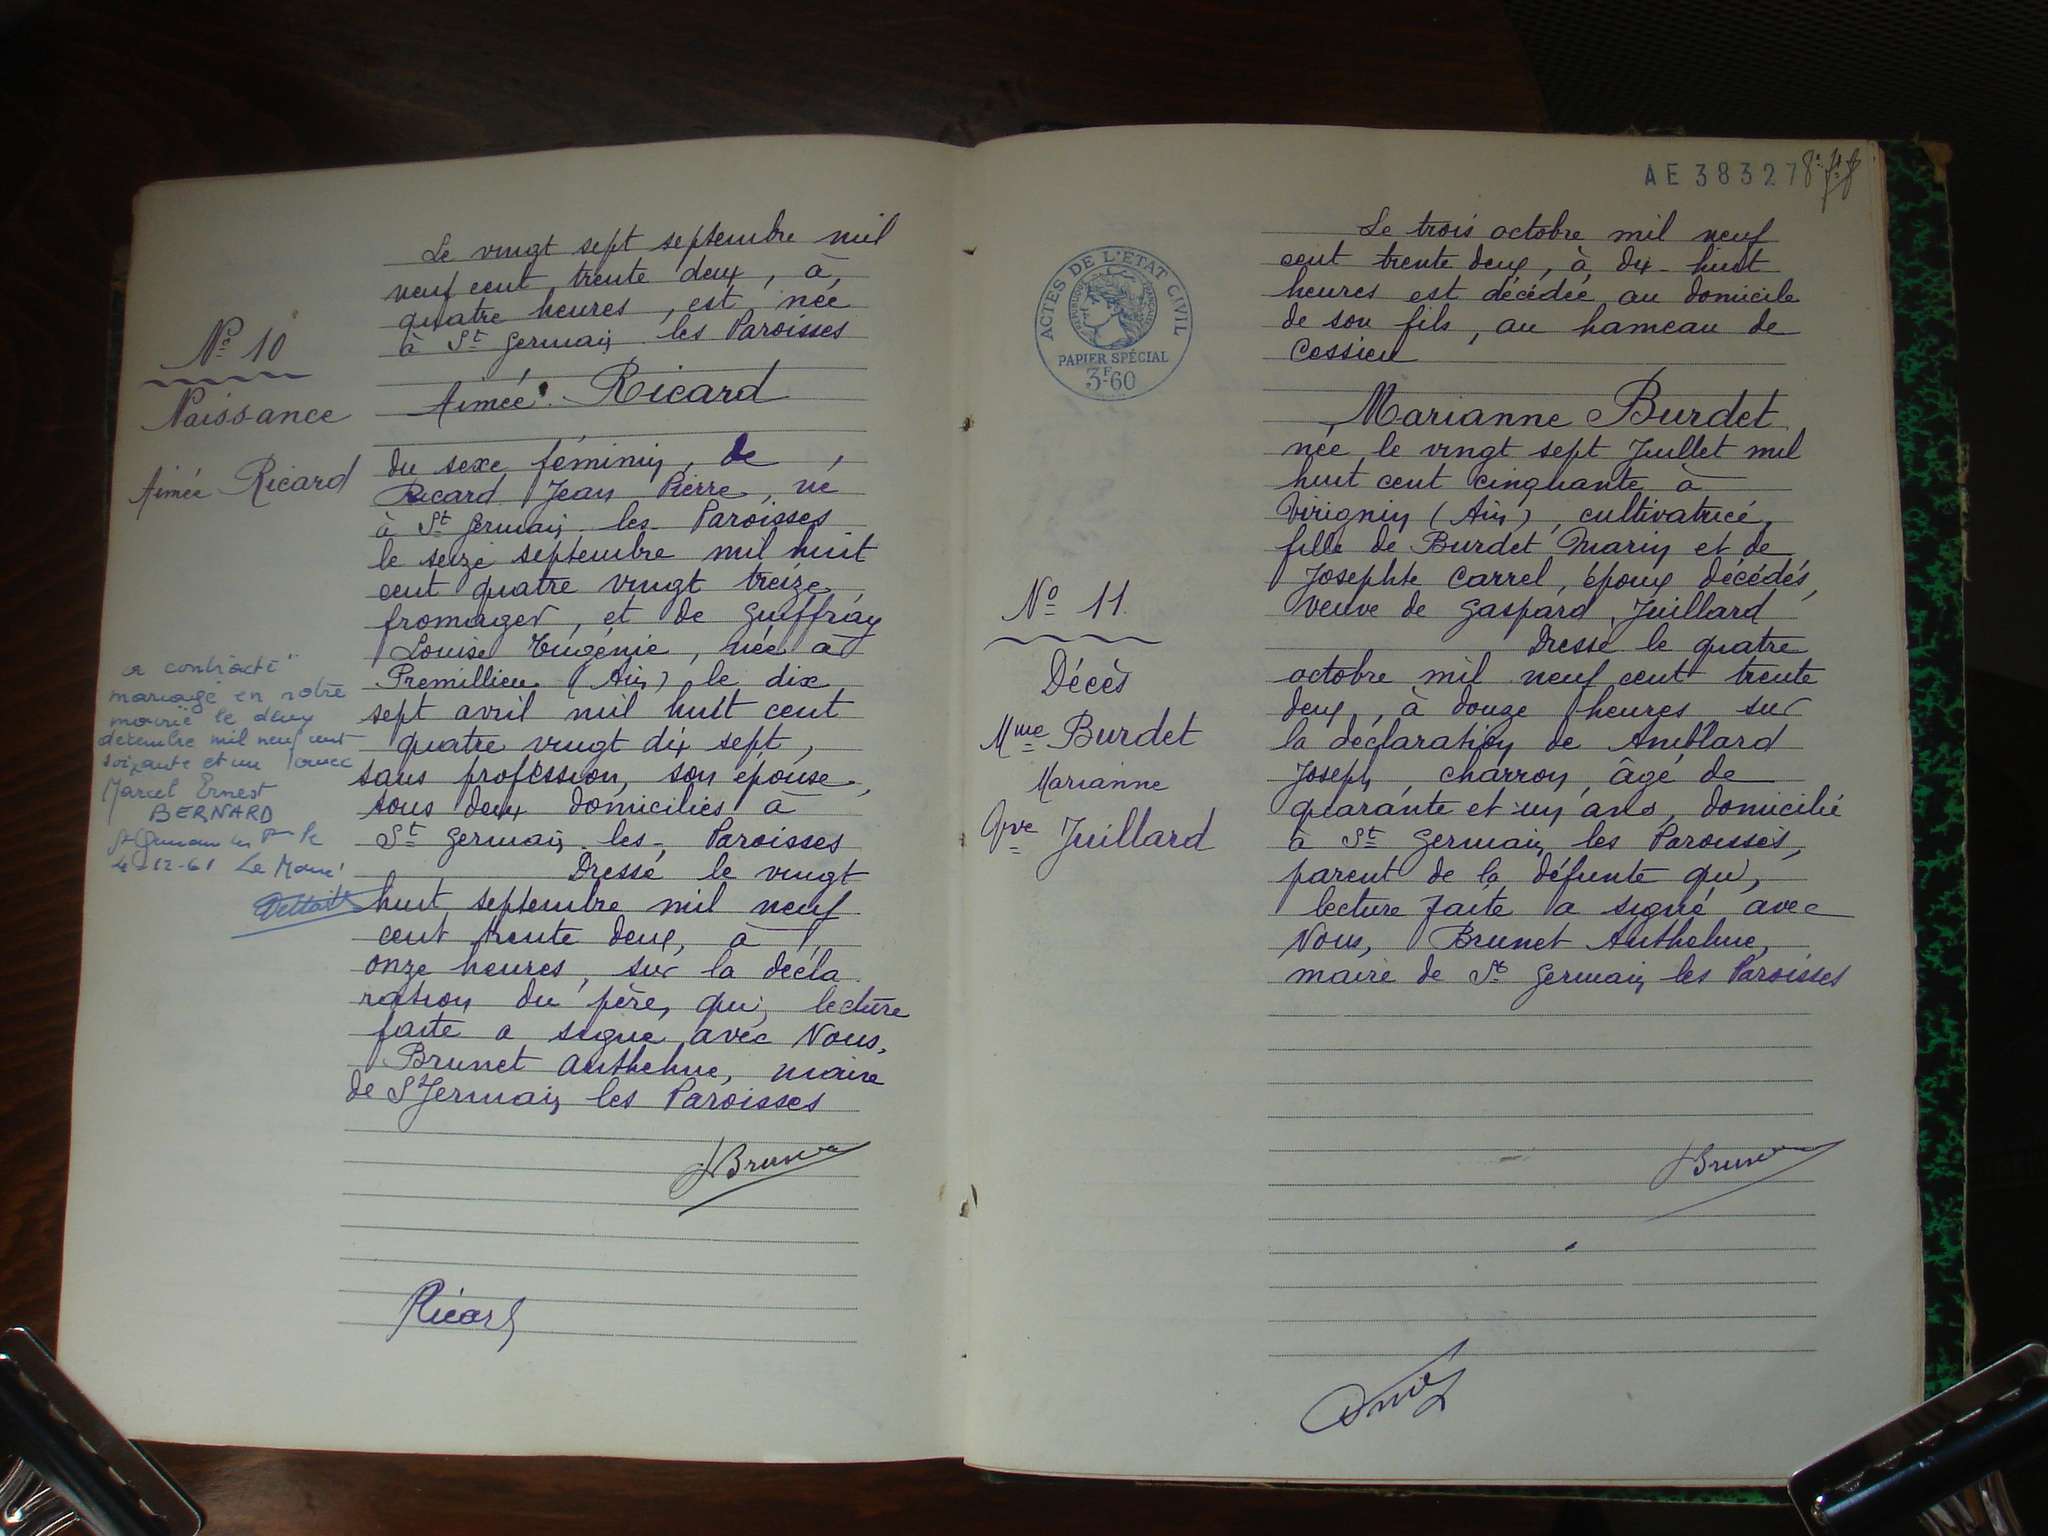 Le vingt sept septembre mil
neuf cent trente deux, à
quatre heures, est née
à St Germain les Paroisses
Nº 10
Naissance
Aimée Ricard
Aimée Ricard
du sexe féminin, de
Ricard Jean Pierre, né
à St Germain les Paroisses
le seize septembre mil huit
cent quatre vingt treize
fromager, et de Guiffray
Louise Eugénie, née à
Premillieu (Ain) le dix
sept avril mil huit cent
quatre vingt dix sept,
sans profession, son épouse,
tous deux domiciliés à
St Germain les Paroisses
Dressé le vingt
huit septembre mil neuf
cent trente deux, à
onze heures, sur la décla
ration du père, qui, lecture
faite a signé avec Nous,
Brunet Anthelme, maire
de St Germain les Paroisses
a contracté
mariage en notre
mairie le deux
décembre mil neuf cent
soixante et un avec
Marcel Ernest
BERNARD
St Germain les Psses le
4-12-61 Le Maire
JBrunet
Ricard
AE 38327 8e
ACTES DE L'ÉTAT CIVIL
RÉPUBLIQUE FRANÇAISE
PAPIER SPÉCIAL
3F60
Le trois octobre mil neuf
cent trente deux, à dix-huit
heures est décédée au domicile
de son fils, au hameau de
Cessieu
Marianne Burdet
née le vingt sept Juillet mil
huit cent cinquante à
Virignin (Ain), cultivatrice,
fille de Burdet Marin et de
Josephte Carrel, époux décédés,
veuve de Gaspard Juillard
Nº 11
Décès
Mme Burdet
Marianne
Vve Juillard
Dressé le quatre
octobre mil neuf cent trente
deux, à douze heures sur
la déclaration de Amblard
Joseph, charron, âgé de
quarante et un ans, domicilié
à St Germain les Paroisses,
parent de la défunte qui,
lecture faite a signé avec
Nous, Brunet Anthelme,
maire de St Germain les Paroisses
JBrunet